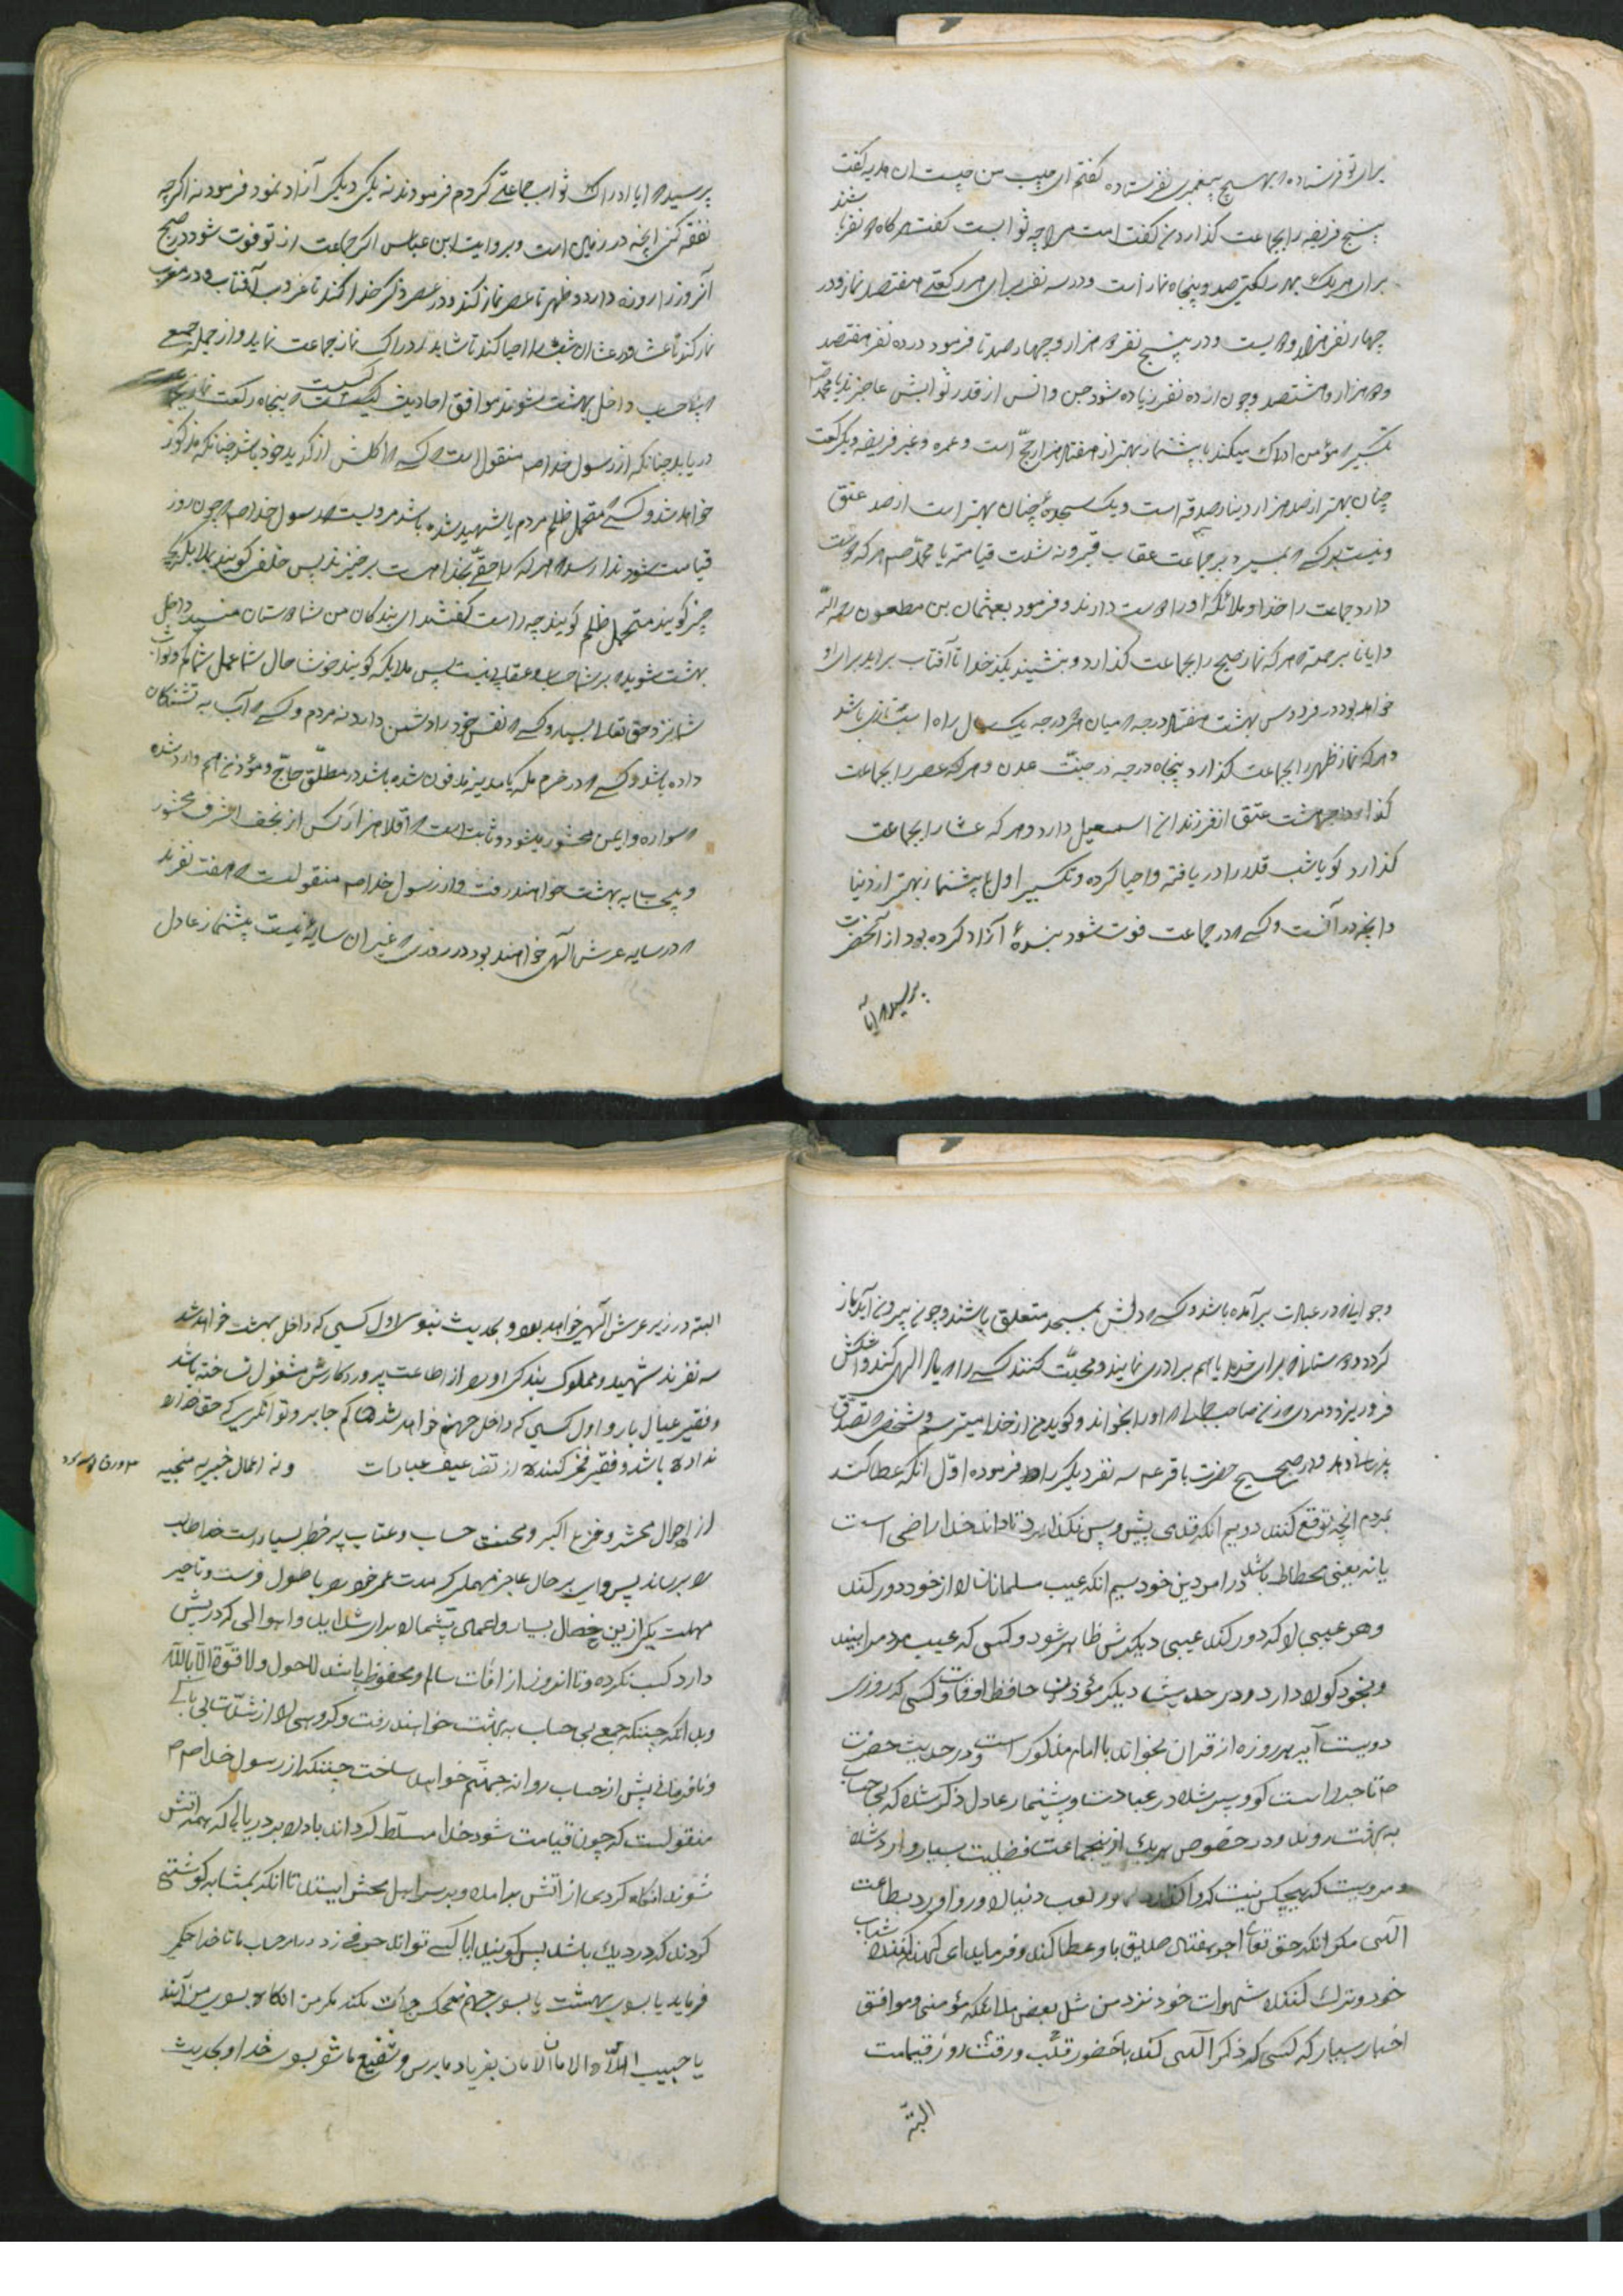 برای تو فرستاده که بهیچ پیغمبری نفرستاده گفتم ای حبیب من چیست آن هدیه گفت
پنج فریضه را بجماعت گذاردن گفت امت مرا چه ثوابست گفت هرگاه دو نفر باشند
برای هر یک بهر رکعتی صد و پنجاه نماز است و در سه نفر برای هر رکعتی هفتصد نماز و در
چهار نفر هزار و دویست و در پنج نفر دو هزار و چهارصد تا فرمود در ده نفر هفتصد
و دو هزار و هشتصد و چون از ده نفر زیاده شود جن و انس از قدر ثوابش عاجزند یا محمد ص
تکبیری که مؤمن ادراک میکند با پیشنماز بهتر از هفتاد هزار حج است و عمره و غیر فریضه و یک رکعت
چنان بهتر از صد هزار دینار صدقه است و یک سجدهٔ چنان بهتر است از صد عتق
و نیست بر کسی که بمیرد بر جماعت عقاب قبر و نه شدت قیامت یا محمد ص هر که دوست
دارد جماعت را خدا و ملائکه او را دوست دارند و فرمود بعثمان بن مظعون رحمه الله
که هر که نماز صبح را بجماعت گذارد و بنشیند بذکر خدا تا آفتاب براید برای او
خواهد بود در فردوس بهشت هفتاد درجه که میان هر درجه یک سال راه اسب تازی باشد
و هر که نماز ظهر را بجماعت گذارد پنجاه درجه در جنت عدن و هر که عصر را بجماعت
گذارد اجر هشت عتق از فرزندان اسمعیل دارد و هر که عشا را بجماعت
گذارد گویا شب قدر را دریافته و احیا کرده و تکبیر اول با پیشنماز بهتر از دنیا
و آنچه در آنست و کسی که در جماعت فوت شود بندهٔ آزاد کرده بود از آنحضرت
پرسید که آیا
پرسید که آیا ادراک ثواب جماعتی کردم فرمودند نه یکی دیگر آزاد نمود فرمود نه اگر چه
نفقه کنی آنچه در زمین است و بروایت ابن عباس اگر جماعت از تو فوت شود در صبح
آنروز را روزه دارد و ظهر تا عصر نماز کند و در عصر ذکر خدا کند تا غروب آفتاب و در مغرب
نماز کند تا عشا و در عشا آن شب را احیا کند تا شاید ادراک نماز جماعت نماید و از جمله جمعی
که بیحساب داخل بهشت شوند موافق احادیث کسیست که پنجاه رکعت نماز
دریابد چنانکه از رسول خدا ص منقول است و کسی که اکلش از کد ید خود باشد چنانکه مذکور
خواهد شد و کسی که متحمل ظلم مردم یا شهید شده باشد مرویست از رسول خدا ص که چون روز
قیامت شود ندا رسد که هر که را حقی بخدا هست برخیزند پس خلقی گویند ملایکه بچه
چیز گویند متحمل ظلم گویند چه راست گفتند ای بندگان من شما دوستان منید داخل
بهشت شوید که بر شما حساب و عقابی نیست پس ملایکه گویند خوشا حال شما عمل شما کم و ثواب
شما نزد حق تعالی بسیار و کسی که نفس خود را دشمن دارد نه مردم و کسی که آب به تشنگان
داده باشد و کسی که در حرم مکه یا مدینه مدفون شده باشد و مطلق حاج و مؤذن هم وارد شده
که سواره و ایمن محشور میشود و ثابت است که اقلا هزار کس از نجف اشرف محشور
و بیحساب به بهشت خواهند رفت و از رسول خدا ص منقولست که هفت نفرند
که در سایه عرش الهی خواهند بود در روزی که غیر آن سایهٔ نیست پیشنماز عادل
و جوانی که در عبادت برآمده باشد و کسی که دلش بمسجد متعلق باشد و چون بیرون آید باز
گردد و دوستانی که برای خدا با هم برادری نمایند و محبت کنند و کسی که یاد الهی کند و اشکش
فرو ریزد و مردی که زنی صاحب جمال او را بخواند و گوید من از خدا میترسم و شخصی که تصدق
پنهان دهد و در صحیح حضرت باقر ع سه نفر دیگر را هم فرموده اول آنکه عطا کند
بمردم آنچه توقع کنند دویم آنکه قدمی پیش و پس نگذارد تا داند خدا راضی است
یا نه یعنی محطاط باشد در امر دین خود سیم آنکه عیب مسلمانان را از خود دور کند
و هر عیبی را که دور کند عیبی دیگرش ظاهر شود و کسی که عیب مردم را بیند
و بخود گوارا دارد و در حدیث دیگر مؤذن حافظ اوقات و کسی که روزی
دویست آیه هر روزه از قرآن بخواند با امام مذکور است و در حدیث حضرت
ص تاجر راست گو و پیر شده در عبادت و پیشنماز عادل ذکر شده که بی حساب
به بهشت روند و در خصوص هر یک از اینجماعت فضیلت بسیار وارد شده
و مرویست که هیچکس نیست که واگذارد لهو و لعب دنیا را و رو آورد بطاعت
الهی مگر آنکه حق تعالی اجر هفتاد صدیق باو عطا کند و فرماید ای کهنه کننده شباب
خود و ترک کننده شهوات خود نزد من مثل بعض ملائکه مؤمنی و موافق
اخبار بسیار که کسی که ذکر الهی کند باحضور قلب و رقت روز قیامت
البته
البته در زیر عرش الهی خواهد بود و بحدیث نبوی اول کسی که داخل بهشت خواهد شد
سه نفرند شهید و مملوک بندگی او را از اطاعت پروردگارش مشغول نساخته باشد
و فقیر عیال بار و اول کسی که داخل جهنم خواهد شد حاکم جابر و توانگری که حق خدا
نداده باشد و فقیر فخر کننده از تضاعیف عبادات و نه اعمال خیریه منجیه
از احوال محشر و فزع اکبر و محنت حساب و عتاب پر خطر بسیارست خدا طالب
را برساند پس وای بر حال عاجز مهملی که مدت عمر خود را با طول فرصت و تاخیر
مهلت یکی ازین خصال بسیار و اعمال بیشمار را برای شداید و اهوالی که در پیش
دارد کسب نکرده و تا آنروز از آفات سالم و محفوظ باشد لاحول ولا قوة الا بالله
و بدانکه چنانکه جمعی بی حساب به بهشت خواهند رفت و گروهی را از شدت بی باکی
و نافرمانی پیش از حساب روانه جهنم خواهد ساخت چنانکه از رسول خدا ص
منقولست که چون قیامت شود خدا مسلط گرداند باد را بر دریایی که همه آتش
شوند آنگاه گردی از آتش برآمده و بر سر اهل محشر ایستد تا آنکه بمشابه گوشتی
گردند که در دیک باشد پس گویند آیا کسی تواند حرفی زد در امر حساب ما تا خدا حکم
فرماید یا بسوی بهشت یا بسوی جهنم هیچکس جرأت نکند مگر من آنگاه بسوی من آیند
یا حبیب الله الامان الامان بفریاد ما برس و شفیع ما شو بسوی خدا و بحدیث